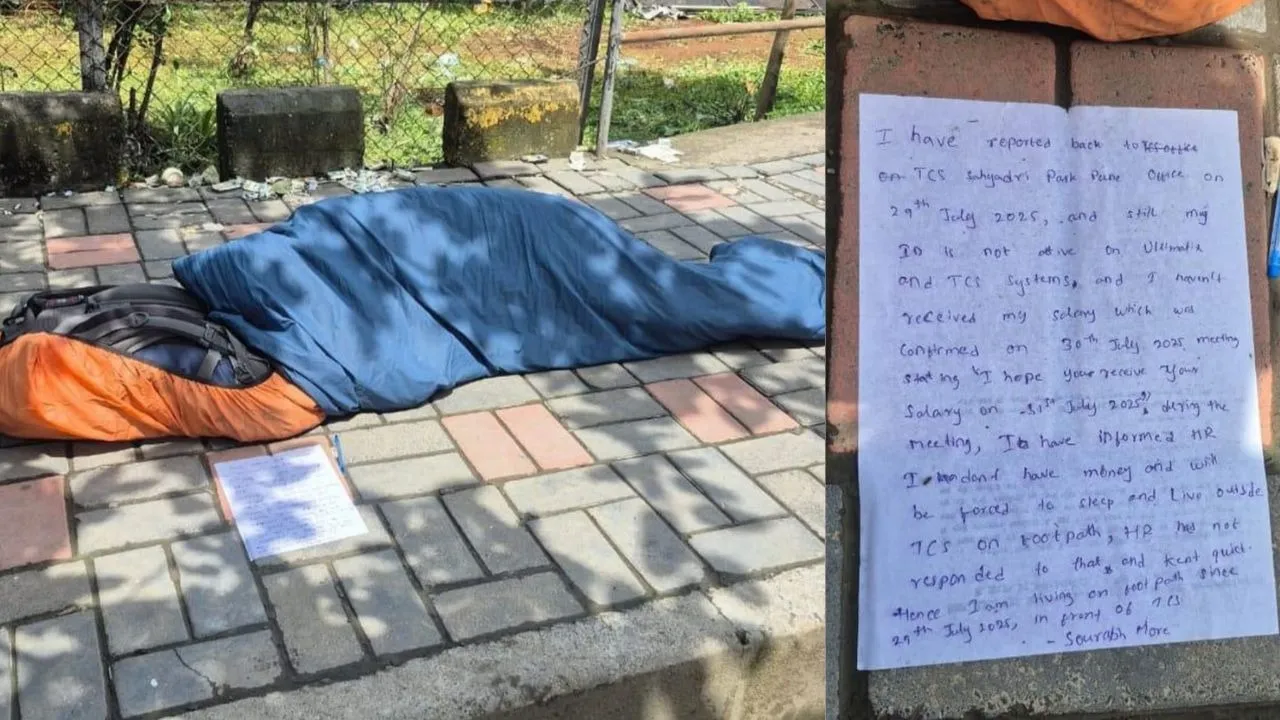 I have reported back to
on TCS Sahyadri Park Pune Office on
29th July 2025, and still my
ID is not ative on Ultimatix
and TCS systems, and I haven't
received my salary which was
confirmed on 30th July 2025 meeting
stating "I hope you receive your
salary on 31st July 2025", during the
meeting, I have informed HR
I dondt have money and will
be forced to sleep and Live outside
TCS on footpath, HR has not
responded to that, and kept quiet.
Hence I am living on footpath since
29th July 2025, in front of TCS
- Sourabh More